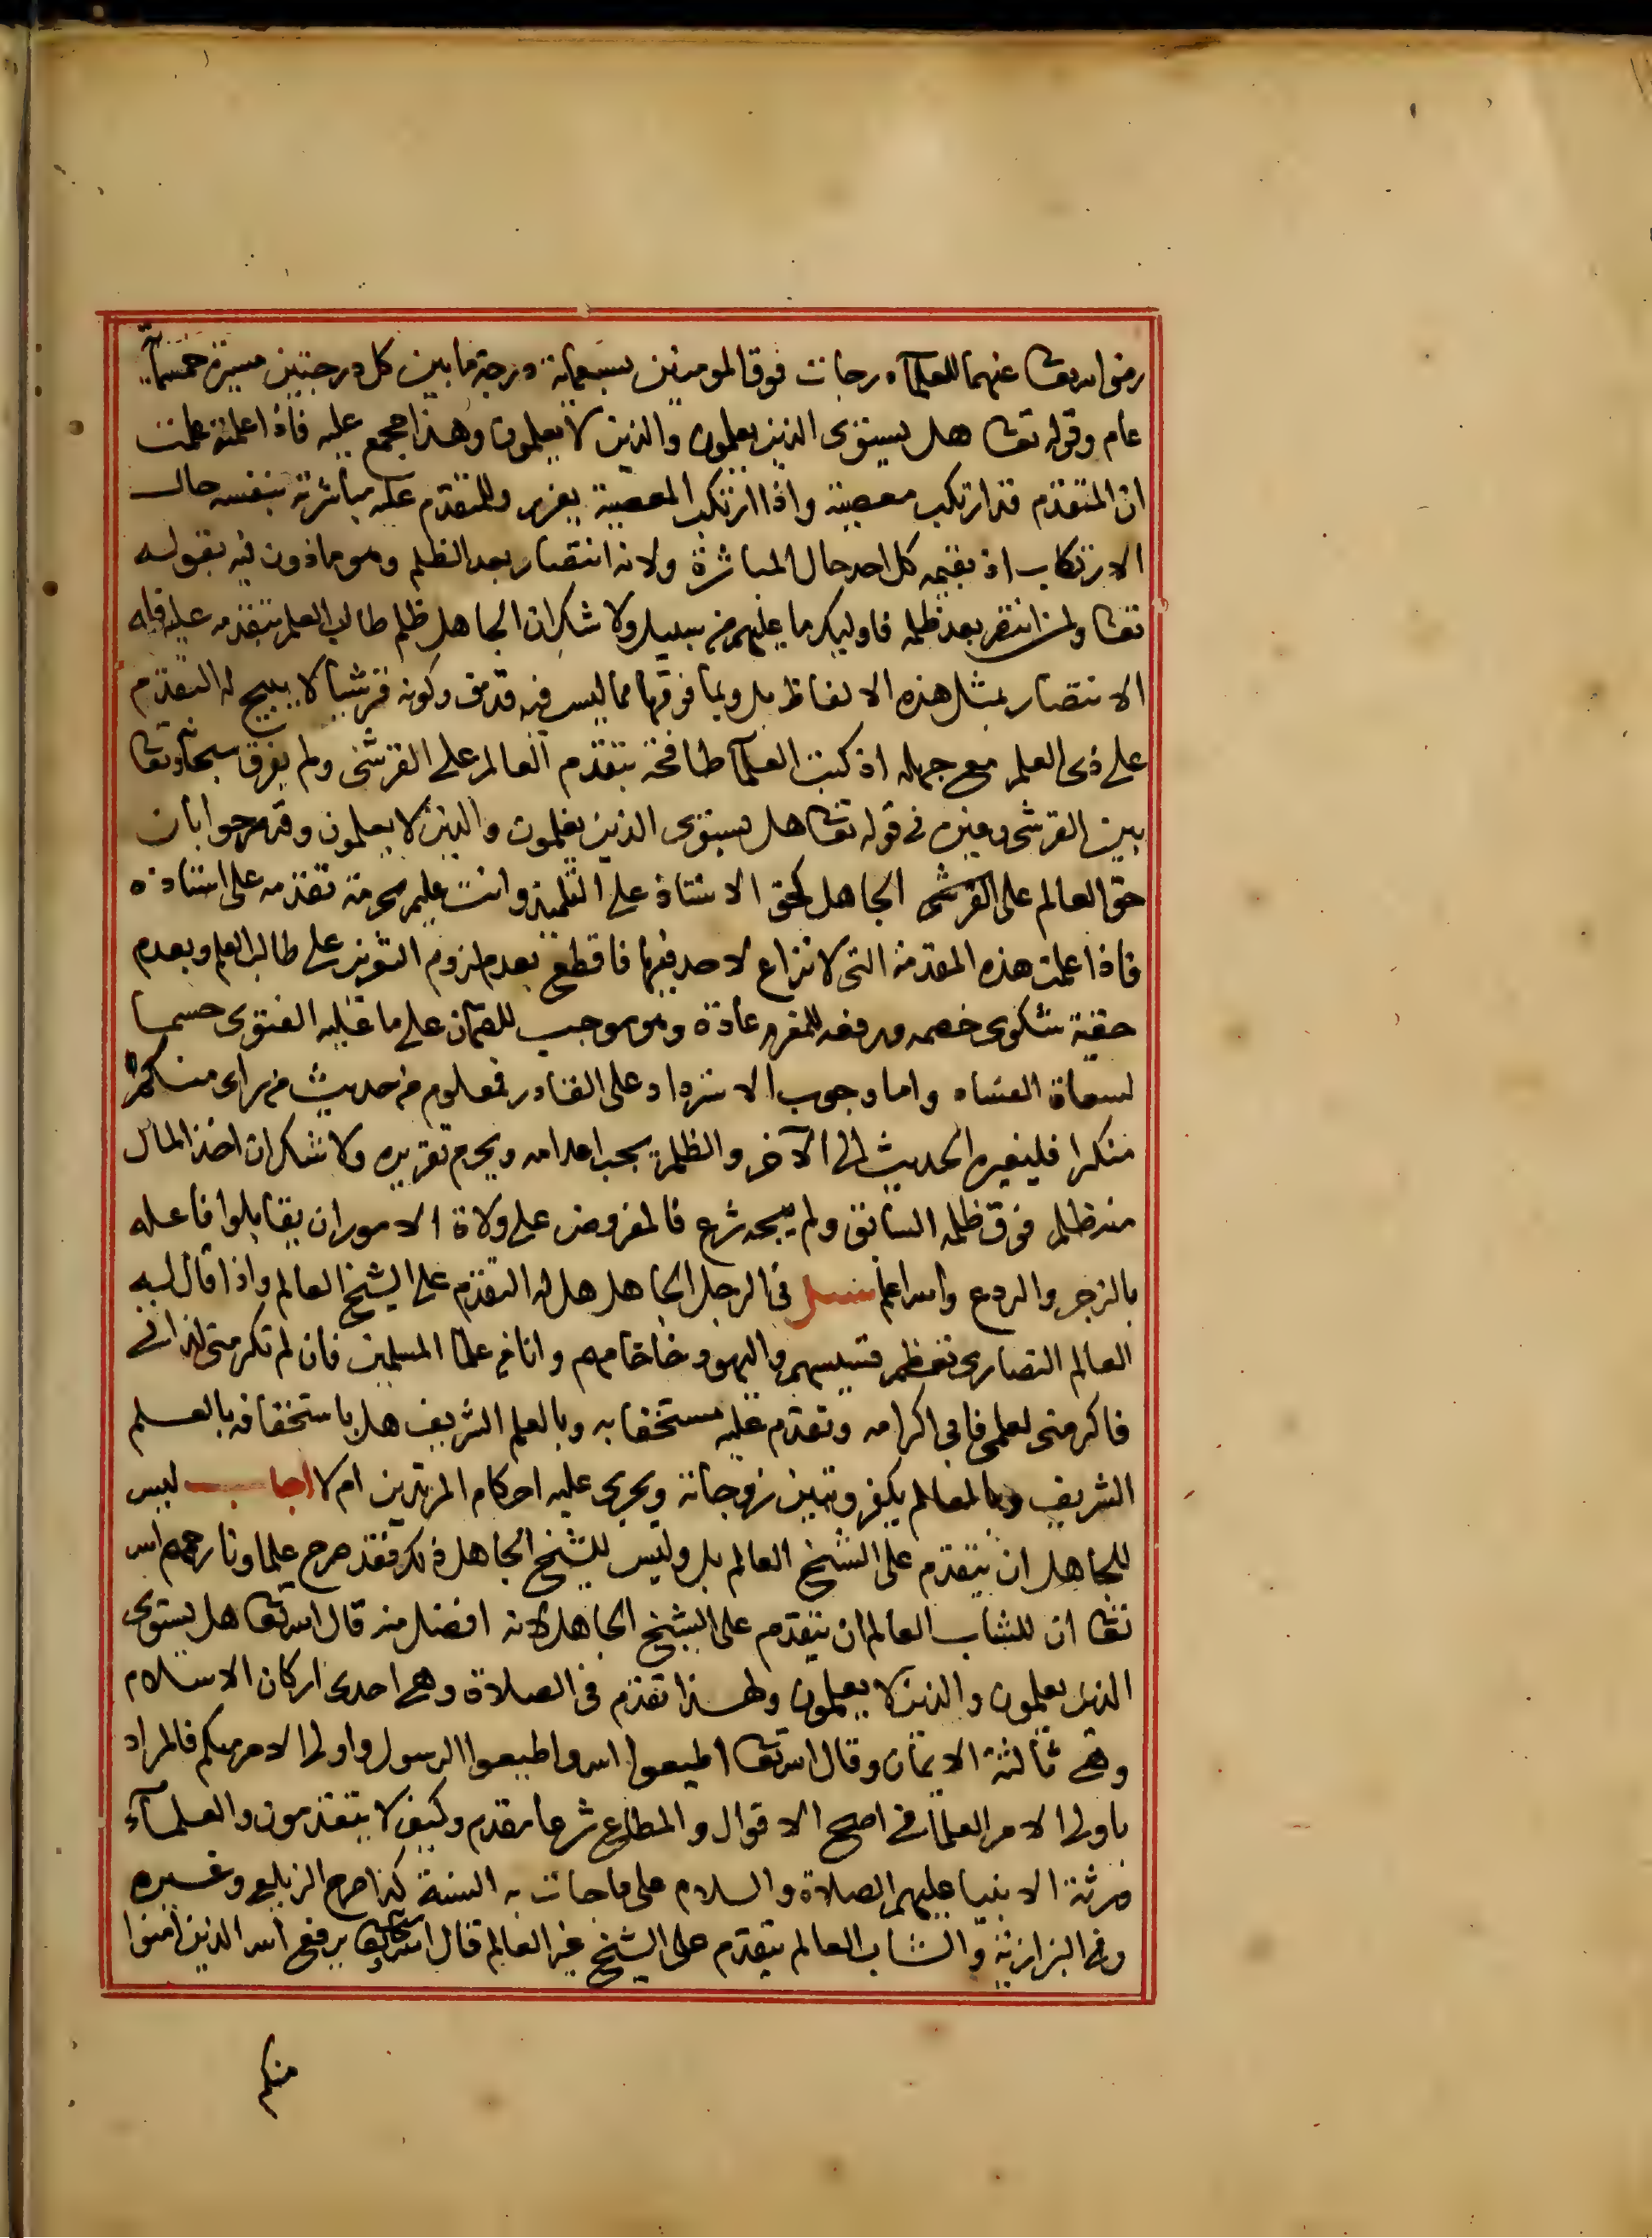 رضي الله تعا عنهما للعلماء درجات فوق المومنين بسبعماية درجة ما بين كل درجتين مسيرة خمسماية
عام وقوله تعا هل يستوى الذين يعلمون والذين لا يعلمون وهذا مجمع عليه فاذا علمته علمت
ان المتقدم قد ارتكب معصية واذا ارتكب المعصية يعزر وللمتقدم عليه مباشرته بنفسه حال
الارتكاب اذ يقيمه كل احد حال المباشرة ولانه انتصار بعد الظلم وهو ماذون فيه بقوله
تعا ولمن انتصر بعد ظلمه فاوليك ما عليهم من سبيل ولا شك ان الجاهل ظلم طالب العلم بتقدمه عليه فله
الانتصار بمثل هذه الالفاظ بل وبما فوقها مما ليس فيه قذف وكونه قرشيا لا يبيح له التقدم
على ذى العلم مع جهله اذ كتب العلما طافحة بتقدم العالم على القرشى ولم يفرق سبحانه وتعا
بين القرشى وغيره فى قوله تعا هل يستوى الذين يعلمون والذين لا يعلمون وقد صرحوا بان
حق العالم على القرشى الجاهل كحق الاستاذ على التلميذ وانت عليم بحرمة تقدمه على استاذه
فاذا علمت هذه المقدمة التى لا نزاع لاحد فيها فاقطع بعدم لزوم التعزير على طالب العلم وبعدم
حقية شكوى خصمه ورفعه للمغرم عادة وهو موجب للضمان على ما عليه الفتوى حسما
لسعاة الفساد واما وجوب الاسترداد على القادر فمعلوم من حديث من راى منكم
منكرا فليغيره الحديث الى الآخر والظلم يجب اعدامه ويحرم تقريره ولا شك ان اخذ المال
منه ظلم فوق ظلمه السابق ولم يبحه شرع فالمفروض على ولاة الامور ان يقابلوا فاعله
بالزجر والردع والله اعلم سئل فى الرجل الجاهل هل له التقدم على الشيخ العالم واذا قال له
العالم النصارى تعظم قسيسهم واليهود خاخامهم وانا من علما المسلمين فان لم تكرمنى لذاتى
فاكرمنى لعلمى فابى اكرامه وتقدم عليه مستخفا به وبالعلم الشريف هل باستخفافه بالعلم
الشريف وبالعالم يكفر وتبين زوجاته ويجرى عليه احكام المرتدين ام لا اجاب ليس
للجاهل ان يتقدم على الشيخ العالم بل وليس للشيخ الجاهل ذلك فقد صرح علماونا رحمهم الله
تعا ان للشاب العالم ان يتقدم على الشيخ الجاهل لانه افضل منه قال الله تعا هل يستوى
الذين يعلمون والذين لا يعلمون ولهذا تقدم فى الصلاة وهى احدى اركان الاسلام
وهى ثالثة الايمان وقال الله تعا اطيعوا الله واطيعوا الرسول واولى الامر منكم فالمراد
باولى الامر العلماء فى اصح الاقوال والمطاع شرعا مقدم وكيف لا يتقدمون والعلماء
ورثة الانبيا عليهم الصلاة والسلام على ما جات به السنة كذا صرح الزيلعى وغيره
وفى البزازية والشاب العالم يتقدم على الشيخ غير العالم قال الله تعالى يرفع الله الذين آمنوا
منكم